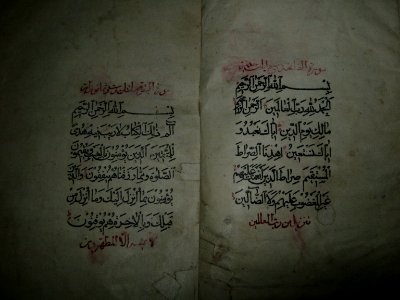 سورة الفاتحة
بسم الله الرحمن الرحيم
الحمد لله رب العالمين الرحمن الرحيم
مالك يوم الدين اياك نعبد و
اياك نستعين اهدنا الصراط
المستقيم صراط الذين انعمت عليهم
غير المغضوب عليهم ولا الضالين
تنزيل من رب العالمين
سورة البقرة
بسم الله الرحمن الرحيم
الم ذلك الكتاب لا ريب فيه هدى
للمتقين الذين يؤمنون بالغيب ويقيمون
الصلوة ومما رزقناهم ينفقون والذين
يؤمنون بما انزل اليك وما انزل من
قبلك وبالاخرة هم يوقنون
لا يمسه الا المطهرون